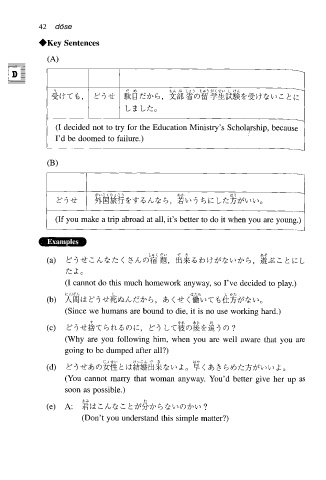 42 dōse
◆Key Sentences
D
(A)
受けても， どうせ 駄目だから，文部省の留学生試験を受けないことに
しました。
(I decided not to try for the Education Ministry's Scholarship, because
I'd be doomed to failure.)
(B)
どうせ 外国旅行をするんなら，若いうちにした方がいい。
(If you make a trip abroad at all, it's better to do it when you are young.)
Examples
(a) どうせこんなたくさんの宿題，出来るわけがないから，遊ぶことにし
たよ。
(I cannot do this much homework anyway, so I've decided to play.)
(b) 人間はどうせ死ぬんだから，あくせく働いても仕方がない。
(Since we humans are bound to die, it is no use working hard.)
(c) どうせ捨てられるのに，どうして彼の後を追うの？
(Why are you following him, when you are well aware that you are
going to be dumped after all?)
(d) どうせあの女性とは結婚出来ないよ。早くあきらめた方がいいよ。
(You cannot marry that woman anyway. You'd better give her up as
soon as possible.)
(e) A: 君はこんなことが分からないのかい？
(Don't you understand this simple matter?)